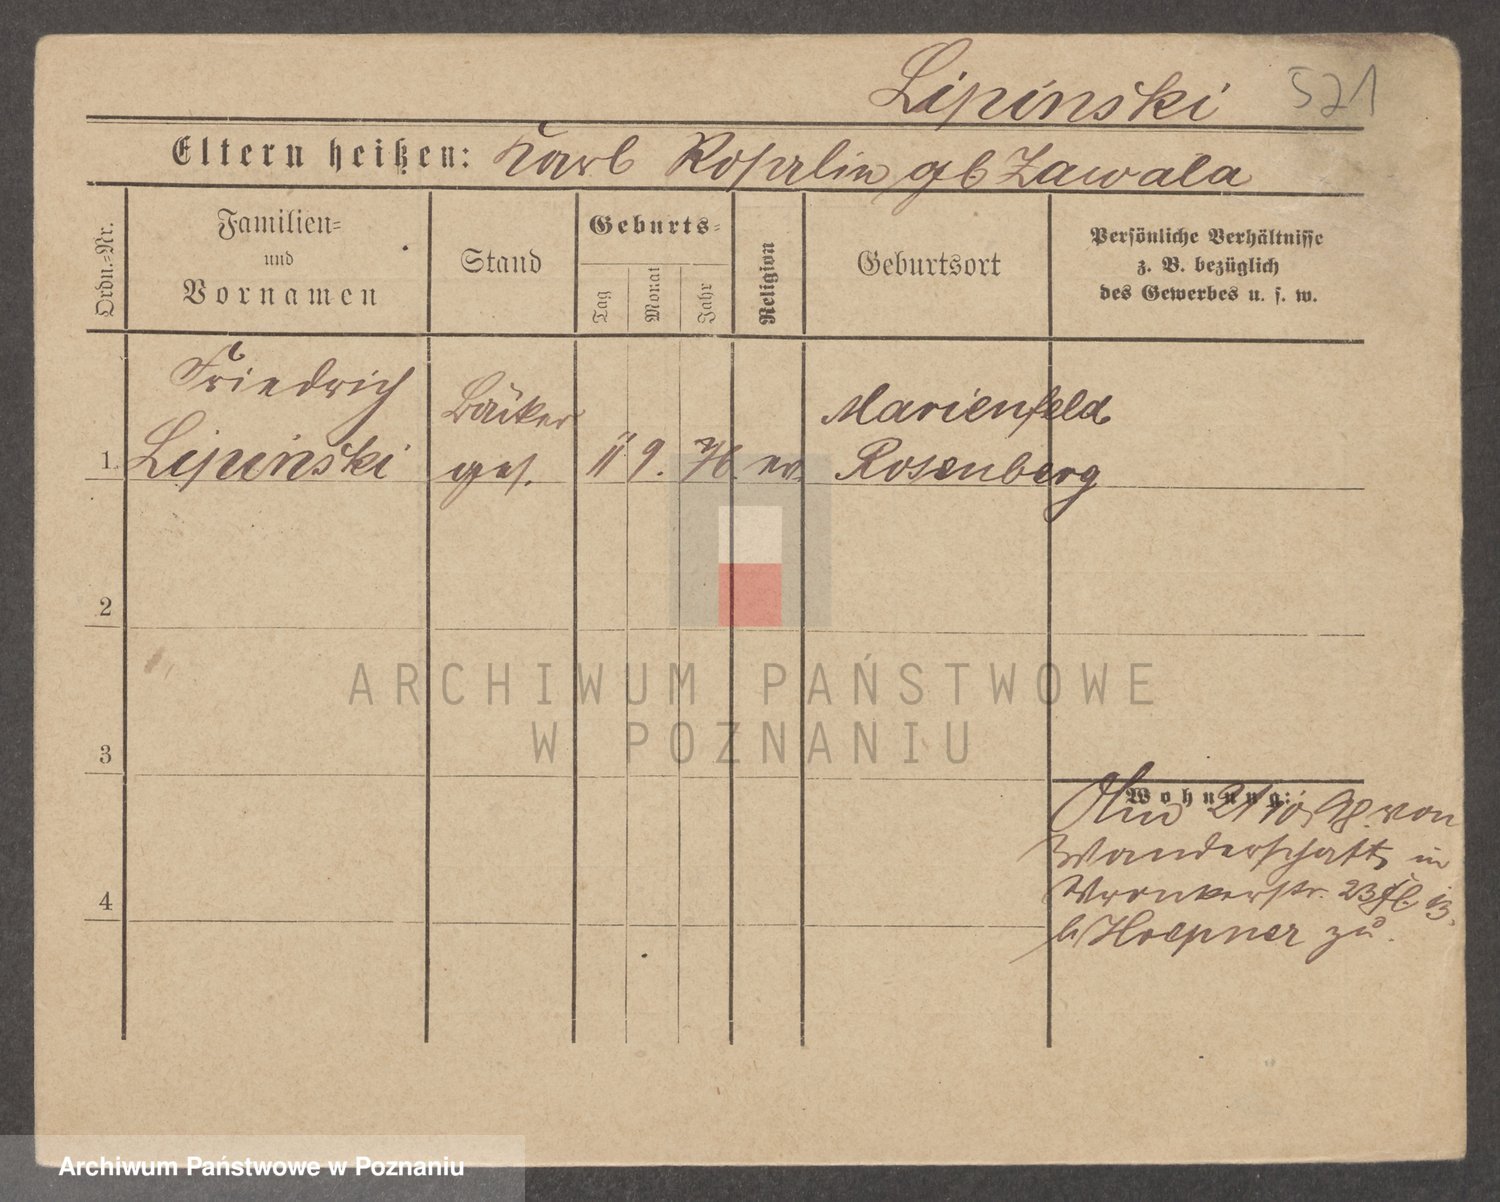 Lipinski 521
Eltern heißen: Karl Rosalin gb Zawala
Ordn.=Nr.
Familien=
und
Vornamen
Stand
Geburts=
Tag
Monat
Jahr
Religion
Geburtsort
Persönliche Verhältnisse
z. B. bezüglich
des Gewerbes u. s. w.
Friedrich
Lipinski
Bäcker
ges.
1. 11 9. 76. ev.
Marienfeld
Rosenberg
2
3
4
Wohnung:
21/10 98. von
Wanderschaft in
Wronkerstr. 23
b Hoepner zu.
ARCHIWUM PAŃSTWOWE
W POZNANIU
Archiwum Państwowe w Poznaniu